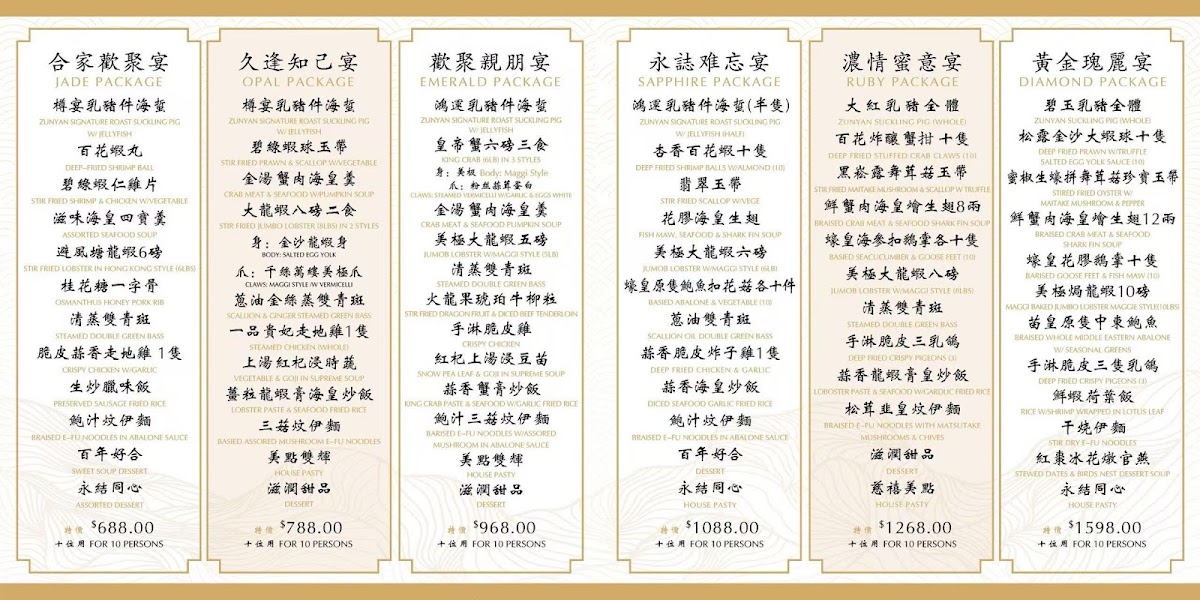 合家歡聚宴
JADE PACKAGE
樽宴乳豬件海蜇
ZUNYAN SIGNATURE ROAST SUCKLING PIG
W/ JELLYFISH
百花蝦丸
DEEP-FRIED SHRIMP BALL
碧綠蝦仁雞片
STIR FRIED SHRIMP & CHICKEN W/VEGETABLE
滋味海皇四寶羹
ASSORTED SEAFOOD SOUP
避風塘龍蝦6磅
STIR FRIED LOBSTER IN HONG KONG STYLE (6LBS)
桂花糖一字骨
OSMANTHUS HONEY PORK RIB
清蒸雙青斑
STEAMED DOUBLE GREEN BASS
脆皮蒜香走地雞 1隻
CRISPY CHICKEN W/GARLIC
生炒臘味飯
PRESERVED SAUSAGE FRIED RICE
鮑汁炆伊麵
BRAISED E-FU NOODLES IN ABALONE SAUCE
百年好合
SWEET SOUP DESSERT
永結同心
ASSORTED DESSERT
特價 $688.00
十位用 FOR 10 PERSONS
久逢知己宴
OPAL PACKAGE
樽宴乳豬件海蜇
ZUNYAN SIGNATURE ROAST SUCKLING PIG
W/ JELLYFISH
碧綠蝦球玉帶
STIR FRIED PRAWN & SCALLOP W/VEGETABLE
金湯蟹肉海皇羹
CRAB MEAT & SEAFOOD W/PUMPKIN SOUP
大龍蝦八磅二食
STIR FRIED JUMBO LOBSTER (8LBS) IN 2 STYLES
身：金沙龍蝦身
BODY: SALTED EGG YOLK
爪：千絲萬縷美極爪
CLAWS: MAGGI STYLE /W VERMICELLI
蔥油金絲蒸雙青斑
SCALLION & GINGER STEAMED GREEN BASS
一品貴妃走地雞1隻
STEAMED CHICKEN (WHOLE)
上湯紅杞浸時蔬
VEGETABLE & GOJI IN SUPREME SOUP
薑粒龍蝦膏海皇炒飯
LOBSTER PASTE & SEAFOOD FRIED RICE
三菇炆伊麵
BASIED ASSORED MUSHROOM E-FU NOODLES
美點雙輝
HOUSE PASTY
滋潤甜品
DESSERT
特價 $788.00
十位用 FOR 10 PERSONS
歡聚親朋宴
EMERALD PACKAGE
鴻運乳豬件海蜇
ZUNYAN SIGNATURE ROAST SUCKLING PIG
W/ JELLYFISH
皇帝蟹六磅三食
KING CRAB (6LB) IN 3 STYLES
身：美极 Body: Maggi Style
爪：粉丝蒜茸蛋白
CLAWS: STEAMED VERMICELLI W/GARLIC & EGGS WHITE
金湯蟹肉海皇羹
CRAB MEAT & SEAFOOD PUMPKIN SOUP
美極大龍蝦五磅
JUMOB LOBSTER W/MAGGI STYLE (5LB)
清蒸雙青斑
STEAMED DOUBLE GREEN BASS
火龍果琥珀牛柳粒
STIR FRIED DRAGON FRUIT & DICED BEEF TENDERLOIN
手淋脆皮雞
CRISPY CHICKEN
紅杞上湯浸豆苗
SNOW PEA LEAF & GOJI IN SUPREME SOUP
蒜香蟹膏炒飯
KING CRAB PASTE & SEAFOOD W/GARLIC FRIED RICE
鮑汁三菇炆伊麵
BARISED E-FU NOODLES W/ASSORED
MUSHROOM IN ABALONE SAUCE
美點雙輝
HOUSE PASTY
滋潤甜品
DESSERT
特價 $968.00
十位用 FOR 10 PERSONS
永誌难忘宴
SAPPHIRE PACKAGE
鴻運乳豬件海蜇(半隻)
ZUNYAN SIGNATURE ROAST SUCKLING PIG
W/ JELLYFISH (HALF)
杏香百花蝦十隻
DEEP FRIED SHRIMP BALLS W/ALMOND (10)
翡翠玉帶
STIR FRIED SCALLOP W/VEGE
花膠海皇生翅
FISH MAW, SEAFOOD & SHARK FIN SOUP
美極大龍蝦六磅
JUMOB LOBSTER W/MAGGI STYLE (6LB)
蠔皇原隻鮑魚扣花菇各十件
BASIED ABALONE & VEGETABLE (10)
蔥油雙青斑
SCALLION OIL DOUBLE GREEN BASS
蒜香脆皮炸子雞1隻
DEEP FRIED CHICKEN & GARLIC
蒜香海皇炒飯
DICED SEAFOOD GARLIC FRIED RICE
鮑汁炆伊麵
BRAISED E-FU NOODLES IN ABALONE SAUCE
百年好合
DESSERT
永結同心
HOUSE PASTY
特價 $1088.00
十位用 FOR 10 PERSONS
濃情蜜意宴
RUBY PACKAGE
大紅乳豬全體
ZUNYAN SUCKLING PIG (WHOLE)
百花炸釀蟹拑十隻
DEEP FRIED STUFFED CRAB CLAWS (10)
黑崧露舞茸菇玉帶
STIR FRIED MAITAKE MUSHROOM & SCALLOP W TRUFFLE
鮮蟹肉海皇燴生翅8兩
BRAISED CRAB MEAT & SEAFOOD SHARK FIN SOUP
蠔皇海參扣鵝掌各十隻
BASIED SEACUCUMBER & GOOSE FEET (10)
美極大龍蝦八磅
JUMOB LOBSTER W/MAGGI STYLE (8LBS)
清蒸雙青斑
STEAMED DOUBLE GREEN BASS
手淋脆皮三乳鴿
DEEP FRIED CRISPY PIGEONS (3)
蒜香龍蝦膏皇炒飯
LOBOSTER PASTE & SEAFOOD W/GARDLIC FRIED RICE
松茸韭皇炆伊麵
BRAISED E-FU NOODLES WITH MATSUTAKE
MUSHROOMS & CHIVES
滋潤甜品
DESSERT
慈禧美點
HOUSE PASTY
特價 $1268.00
十位用 FOR 10 PERSONS
黃金瑰麗宴
DIAMOND PACKAGE
碧玉乳豬全體
ZUNYAN SUCKLING PIG (WHOLE)
松露金沙大蝦球十隻
DEEP FRIED PRAWN W/TRUFFLE
SALTED EGG YOLK SAUCE (10)
蜜椒生蠔拼舞茸菇珍寶玉帶
STIRED FRIED OYSTER W/
MAITAKE MUSHROOM & PEPPER
鮮蟹肉海皇燴生翅12兩
BRAISED CRAB MEAT & SEAFOOD
SHARK FIN SOUP
蠔皇花膠鵝掌十隻
BARISED GOOSE FEET & FISH MAW (10)
美極焗龍蝦10磅
MAGGI BAKED JUMBO LOBSTER MAGGIE STYLE(10LBS)
苗皇原隻中東鮑魚
BRAISED WHOLE MIDDLE EASTERN ABALONE
W/ SEASONAL GREENS
手淋脆皮三隻乳鴿
DEEP FRIED CRISPY PIGEONS (3)
鮮蝦荷葉飯
RICE W/SHRIMP WRAPPED IN LOTUS LEAF
干燒伊麵
STIR DRY E-FU NOODLES
紅棗冰花燉官燕
STEWED DATES & BIRDS NEST DESSERT SOUP
永結同心
HOUSE PASTY
特價 $1598.00
十位用 FOR 10 PERSONS